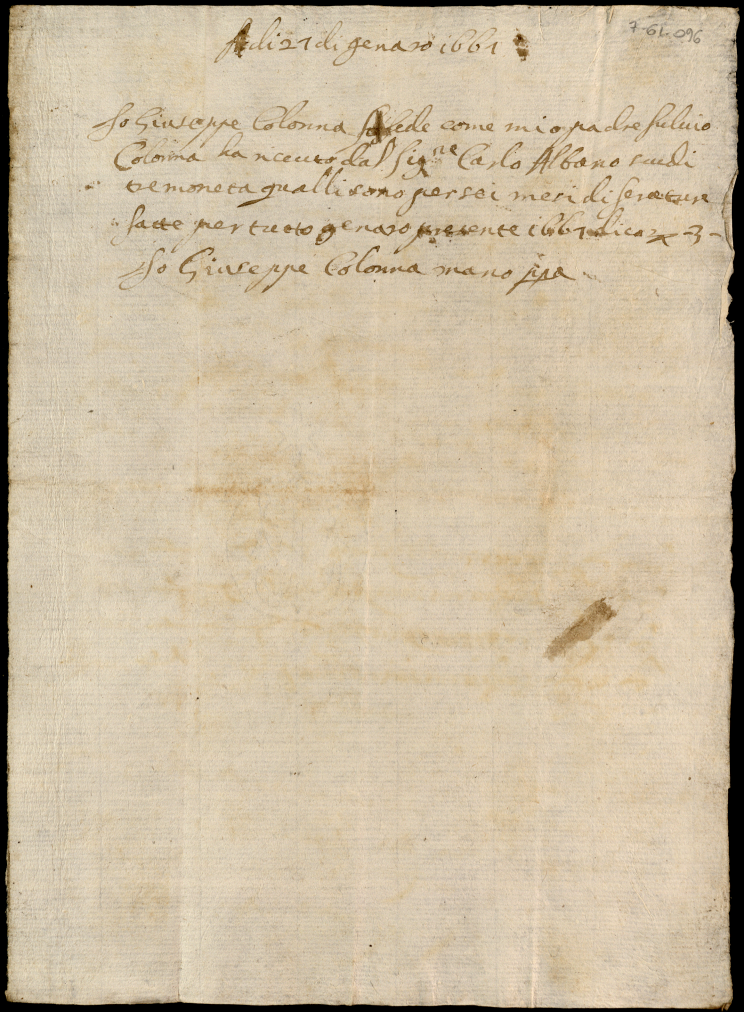 7-61-096
Adi 21 di genaro 1661
Io Giuseppe Colonna fo fede come mio padre fuluio
Colonna ha riceuto dal Sig.ne Carlo Albano scudi
tre moneta qualli sono per sei mesi di
fatte per tutto genaro presente 1661 dico 3
Io Giuseppe Colonna mano ppa